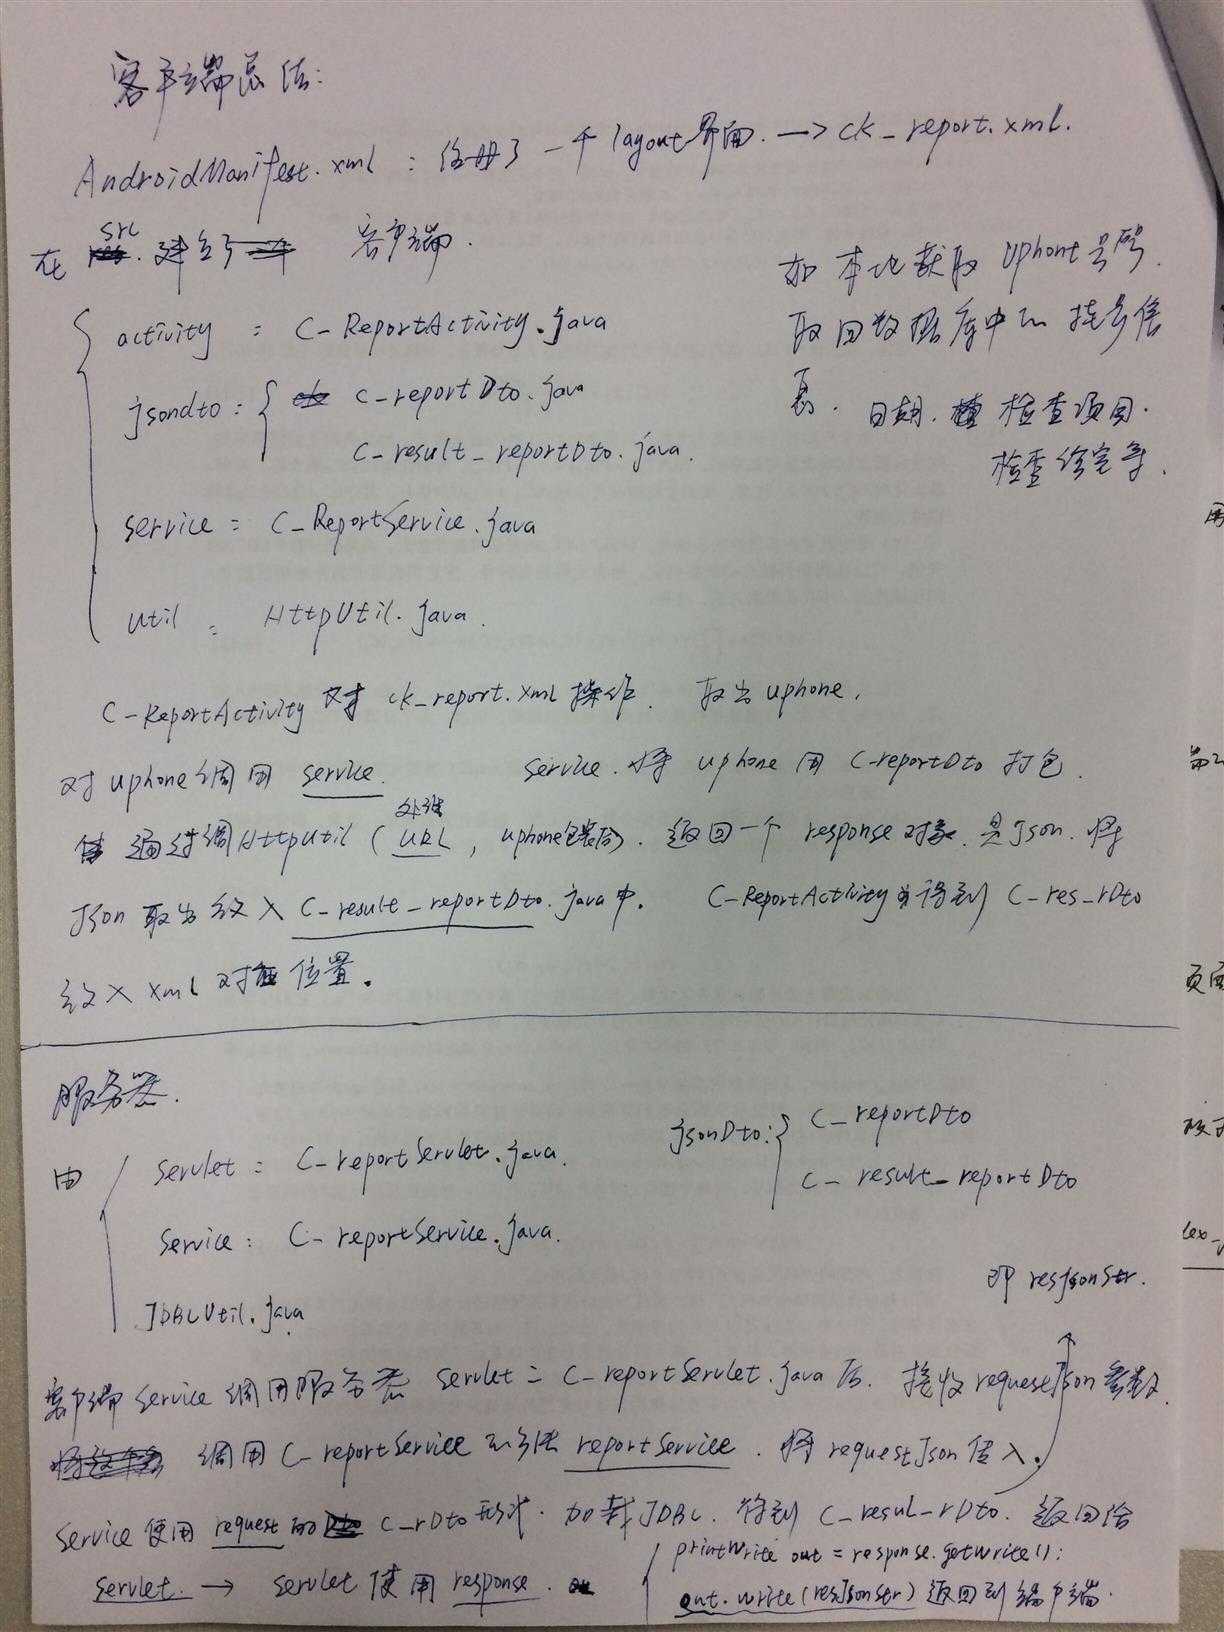 客户端总结:
AndroidManifest.xml : 注册了一个layout界面. → ck_report.xml.
在 src 建立了 客户端.
如本地获取uphone号码.
取回数据库中的挂号信
息. 日期. 检查项目.
检查
activity : C_ReportActivity.java
jsondto : { C_reportDto.java
C_result_reportDto.java.
service : C_ReportService.java
util : HttpUtil.java.
C_ReportActivity 对 ck_report.xml 操作. 取出 uphone,
对uphone调用 service. service. 将 uphone 用 C_reportDto 打包.
通过调HttpUtil ( URL , uphone包装后). 返回一个 response 对象. 是Json. 将
Json 取出放入 C_result_reportDto.java中. C_ReportActivity 得到 C_res_rDto
放入 xml 对应位置.
服务器.
由 { servlet : C_reportServlet.java.
service : C_reportService.java.
JDBCUtil.java
jsonDto: { C_reportDto
C_result_reportDto
即 resJsonStr.
客户端 service 调用服务器 servlet : C_reportServlet.java 后. 接收requestJson参数.
调用 C_reportService 的方法 reportService . 将 requestJson 传入.
service 使用 request 的 C_rDto 形式. 加载JDBC. 得到 C_resul_rDto. 返回给
servlet. → servlet 使用 response.
printWrite out = response.getWrite();
out.write(resJsonStr) 返回到客户端.